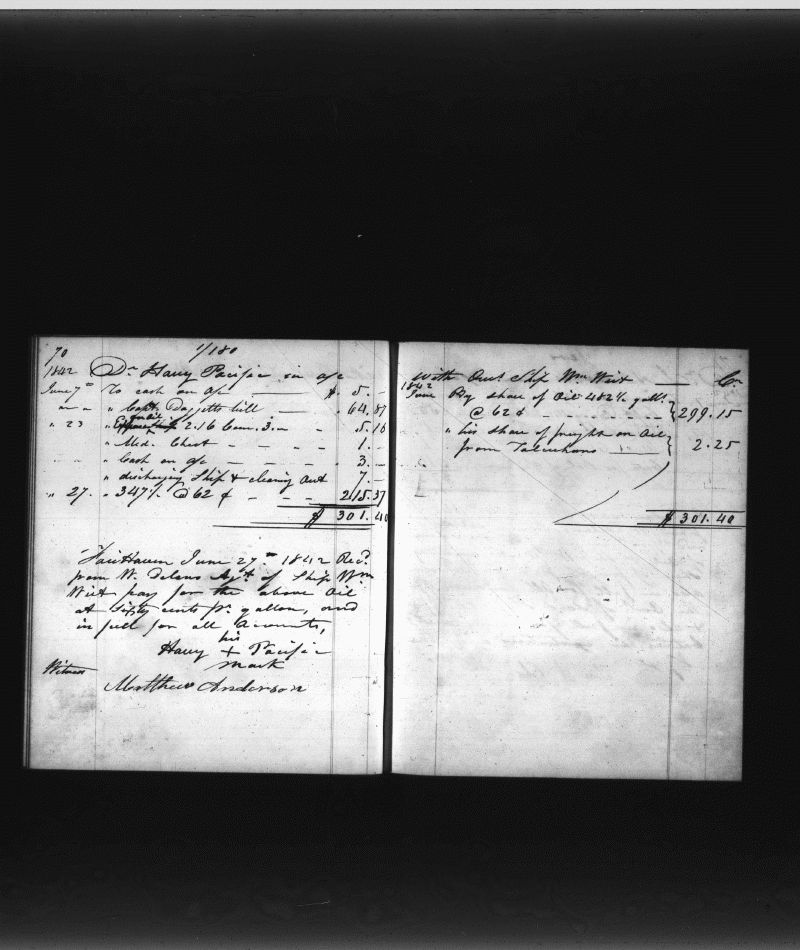 70 1/180
1842 Dr Harry Pacific in a/c
June 7th To cash on a/c $ 5. -
" " " Capt. Daggetts bill 64.87
" 23 " 2.16 Com. 3.- 5.16
" Med. Chest 1. -
" Cash on a/c 3. -
" discharging Ship & clearing out 7. -
" 27. " 347 @ 62 ¢ 215.37
$ 301.40
Fairhaven June 27th 1842 Recd.
from W. Delano Agt of Ship Wm
Wirt pay for the above Oil
at sixty cents pr. gallon, and
in full for all Accounts,
his
Harry + Pacific
mark
Witness
Matthew Anderson
with Ship Wm Wirt Cr
1842
June By share of Oil 482½ galls.
@ 62 ¢ 299.15
" his share of freight on Oil
from Talcuhano 2.25
$ 301.40